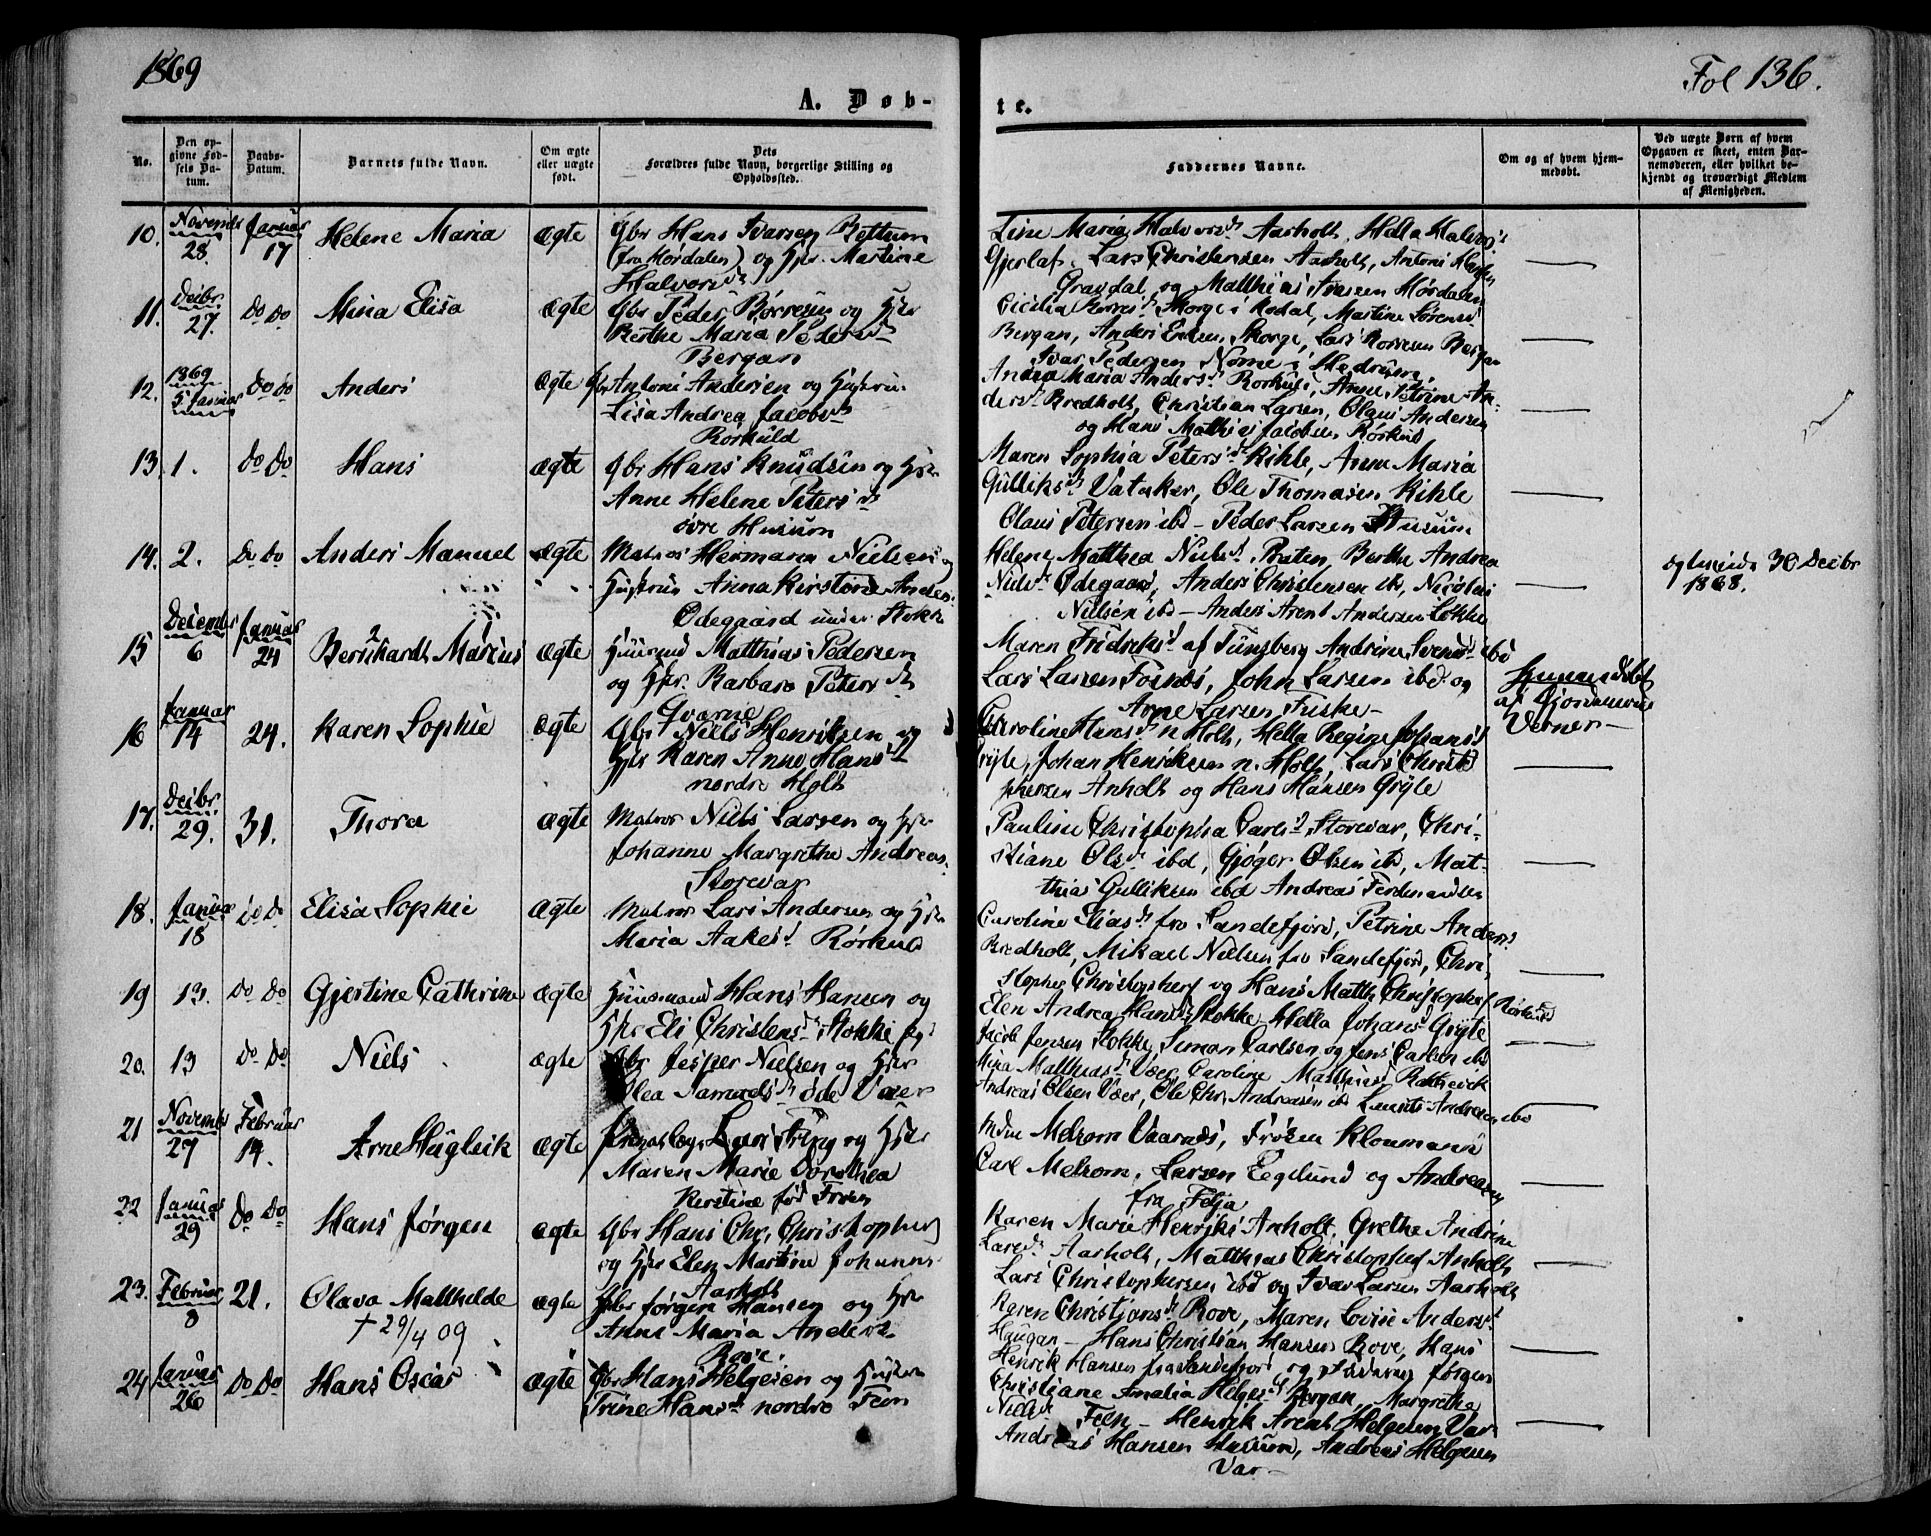 1869
Fol 136.
A. Døb-
te.
No.
Den op-
givne Fød-
sels Da-
tum.
Daabs-
Datum.
Barnets fulde Navn.
Om ægte
eller uægte
født.
Dets
Forældres fulde Navn, borgerlige Stilling og
Opholdssted.
Faddernes Navne.
Om og af hvem hjem-
medøbt.
Ved uægte Børn af hvem
Opgaven er skeet, enten Bar-
nemoderen, eller hvilket be-
kjendt og troværdigt Medlem
af Menigheden.
10. Novembr 28. Januar 17 Helene Maria ægte Gbr Hans Ivarsen Bettum
(fra Mørdalen) og Hstr. Martine
Halvorsd
Line Maria Halvorsd Aarholt, Hella Halvorsd
Gjerlaf. Lars Christensen Aarholt, Antoni
Gravdal og Matthias Ivarsen Mørdalen
11. Decbr. 27. Do Do Mina Elisa ægte Gbr Peder Børresen og Hstr
Berthe Maria Pedersd
Bergan
Cicilia Børresd Skorge i Kodal, Martine Sørensd
Bergan, Anders Skorge, Lars Børresen Bergan
Ivar Pedersen Nome i Hedrum.
12. 1869 5 Januar Do Do Anders Ægte Gbr Antoni Andersen og Hustru
Lisa Andrea Jacobsd
Rorkuld
Andrea Maria Andersd Rorkuld, Anne Petrine An-
dersd Bredholt, Christian Larsen, Olaus Andersen
og Hans Mathias Jacobsen Rørkuld
13. 1. Do Do Hans ægte Gbr Hans Knudsen og Hstr
Anne Helene Petersd
øvre Husum
Maren Sophia Petersd Kihle, Anne Maria
Gulliksd Vataker, Ole Thomasen Kihle
Olaus Petersen ibd - Peder Larsen Husum
14. 2. Do Do Anders Manuel ægte Matros Hermann Nielsen og
Hustrue Anna Kirstine Anders.
Ødegaard under Stokke
Helene Matthea Nielsd Braten, Berthe Andrea
Nielsd Ødegaard, Anders Christensen ib, Nicolai
Nielsen ibd - Anders Arent Andersen Løkke
30 Decbr
1868.
15 Decembr 6 Januar 24 Bernhardt Marius ægte Huusmd Matthias Pedersen
og Hstr. Barbara Petersd
Qværne
Maren Fredriksd af Tunsberg Andrine Svensd ibd
Lars Larsen Fosnes, John Larsen ibd og
Arne Larsen Fuske
Hjemmedøbt
af Gjordemoder
Verner
16 Januar 14 24. Karen Sophie ægte Gbr Niels Henriksen og
Hstr Karen Anne Hansd
nordre Holt
Caroline Hansd n Holt, Hella Regine Johansd
Gryte, Johan Henriksen n. Holt, Lars Christo
phersen Anholt og Hans Hansen Gryte
17. Decbr. 29. 31. Thora ægte Matros Niels Larsen og Hstr
Johanne Margrethe Andreas.
Storevar
Pauline Christopha Carlsd Storevar, Chri-
stiane Olsd ibd, Gjøger Olsen ibd, Mat-
thias Gulliksen ibd Andreas Ferdinandsen
18. Januar 18 Do Do Elisa Sophie ægte Matros Lars Andersen og Hstr
Maria Aakesd Rørkuld
Caroline Eliasd fra Sandefjord, Petrine Andersd
Bredholt, Mikael Nielsen fra Sandefjord, Chri-
stopher Christophers og Hans Matth Christophers Rørkuld
19 13. Do Do Gjertine Cathrine ægte Huusmand Hans Hansen og
Hstr Eli Christensd Stokke
Elen Andrea Hansd Stokke - Hella Johansd Gryte
Jacob Jensen Stokke, Simon Carlsen og Jens Carlsen ibd
20. 13 Do Do Niels ægte Gbr Jesper Nielsen og Hstr
Olea Samuelsd øde Væer
Mina Matthiasd Væer, Caroline Matthiasd Rakkevik
Andreas Olsen Væer, Ole Chr. Andreasen ib Laurits Andresen ibd
21 Novembr 29 Februar 14. Arne Hugleik ægte Lars Tring og Hstr
Maren Marie Dorothea
Kerstine fød Frøsen
Mdm Melsom Vaarnæs, Frøken Kloumann
Carl Melsom, Larsen Eeglund og Andresen
fra Feja
22 Januar 29 Do Do Hans Jørgen ægte Gbr Hans Chr. Christophers
og Hstr Elen Martine Johanns
Aarholt
Karen Marie Henriks Anholt, Grethe Andrine
Larsd Aarholt, Matthias Christophers Anholt
Lars Christophersen ibd og Ivar Larsen Aarholt
23. Februar 8 21. Olava Mathilde ægte Gbr Jørgen Hansen og Hstr
† 29/4 09
Anne Maria Andersd
Rove.
Karen Christiansd Rove, Maren Lovise Andersd
Haugan - Hans Christian Hansen Rove, Hans
Henrik Hansen fra Sandefjord og Jørgen
24 Januar 26 Do Do Hans Oscar ægte Gbr Hans Helgesen og Hustru
Trine Hansd nordre Feen
Christiane Amalia Helgesd Bergan, Margrethe
Nielsd Feen - Henrik Arent Helgesen Var
Andreas Hansen Husum, Andreas Helgesen
Var -